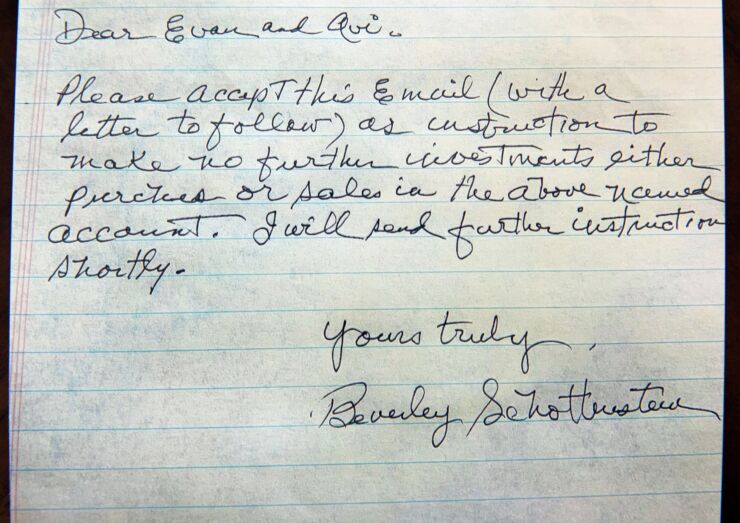 Dear Evan and Avi.
Please accept this Email (with a
letter to follow) as instruction to
make no further investments either
purches or sales in the above named
account. I will send further instruction
shortly.
Yours truly,
Beverley Schottenstein